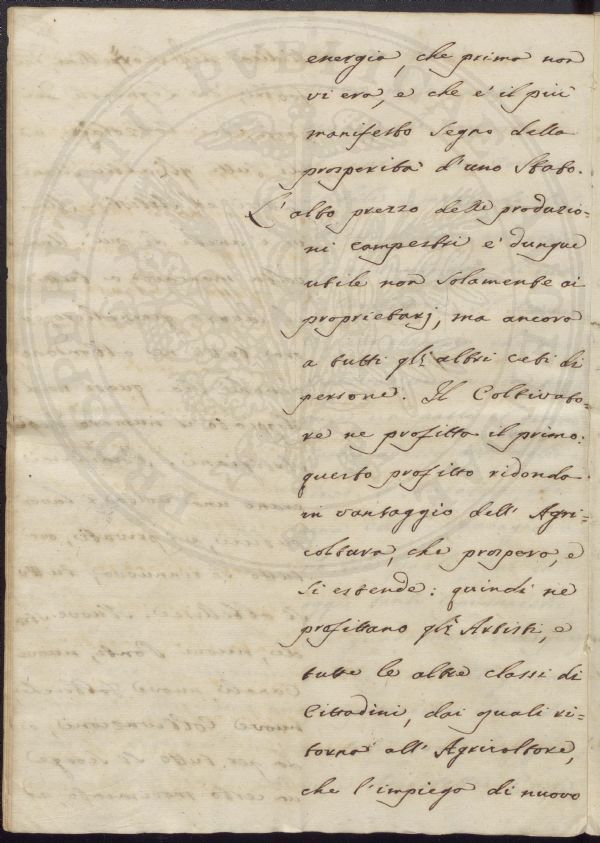 energia, che prima non
vi era, e che e' il più
manifesto segno della
prosperità d'uno Stato.
L'alto prezzo delle produzio=
ni campestri e' dunque
utile non solamente ai
proprietarj, ma ancora
a tutti gli altri ceti di
persone. Il Coltivato=
re ne profitta il primo:
questo profitto ridonda
in vantaggio dell' Agri=
coltura, che prospera, e
si estende: quindi ne
profittano gli Artisti, e
tutte le altre classi di
Cittadini, dai quali ri=
torna all' Agricoltore,
che l'impiega di nuovo